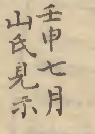 壬申七月
山氏見示